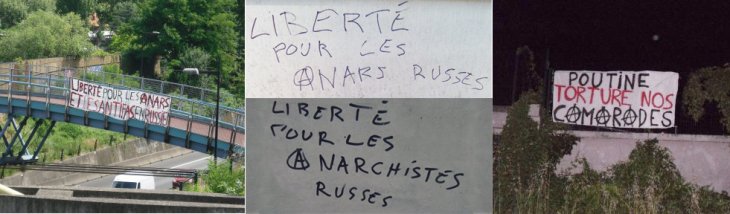 LIBERTÉ POUR LES ANARS
ET LES ANTIFAS EN RUSSIE
LIBERTÉ
POUR LES
ANARS RUSSES
LIBERTÉ
POUR LES
ANARCHISTES
RUSSES
POUTINE
TORTURE NOS
CAMARADES